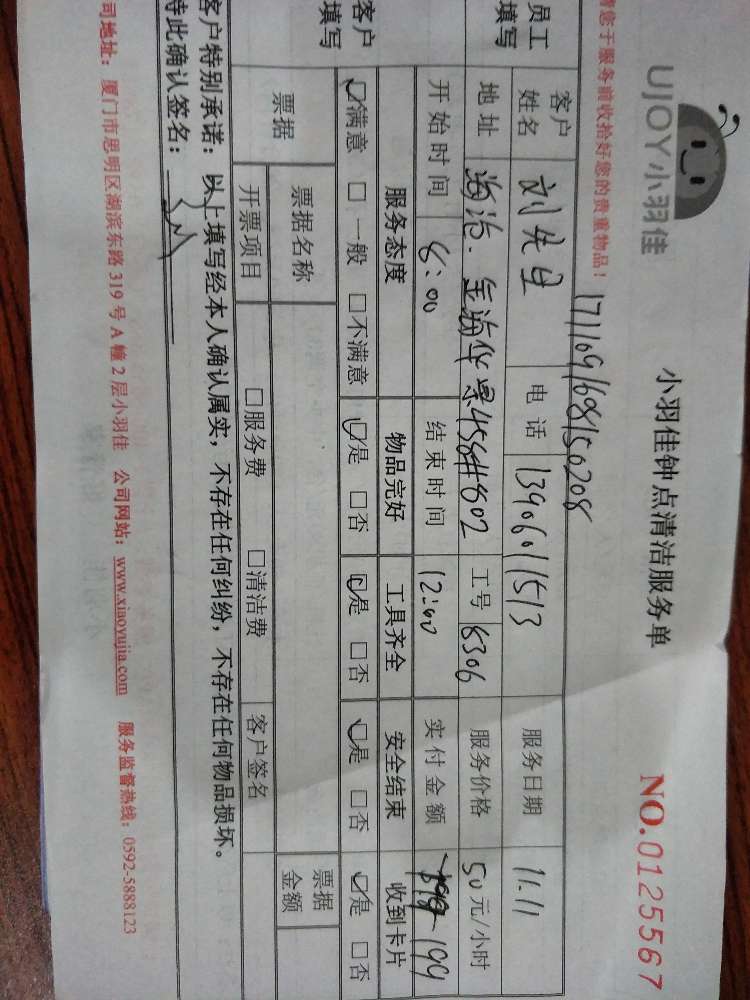 UJOY小羽佳
小羽佳钟点清洁服务单
NO.0125567
请您于服务前收拾好您的贵重物品!
171109168150208
员工填写
客户姓名 刘先生 电话 13906011513 服务日期 11.11
地址 海沧.金海华景456#802 工号 8306 服务价格 50元/小时
开始时间 8:00 结束时间 12:00 实付金额 199
客户填写
服务态度 物品完好 工具齐全 安全结束 收到卡片
☑满意 □一般 □不满意 ☑是 □否 ☑是 □否 ☑是 □否 ☑是 □否
票据 票据名称 票据金额
开票项目 □服务费 □清洁费 客户签名
客户特别承诺:以上填写经本人确认属实,不存在任何纠纷,不存在任何物品损坏。
特此确认签名:
司地址:厦门市思明区湖滨东路319号A幢2层小羽佳 公司网站:www.xiaoyujia.com 服务监督热线:0592-5888123